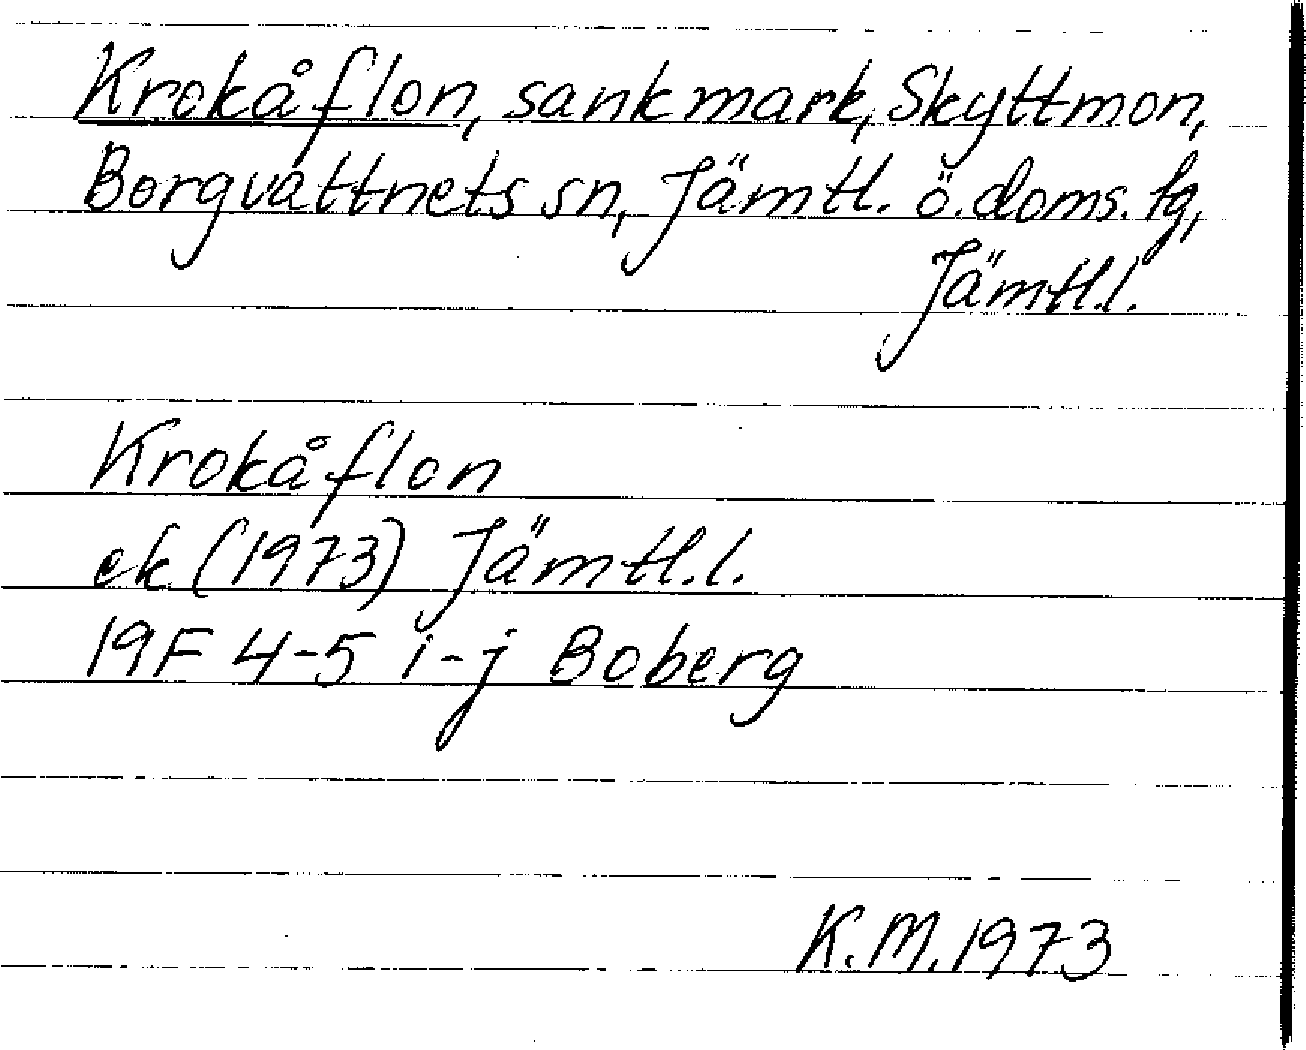 Krokåflon, sankmark, Skyttmon,
Borgvattnets sn, Jämtl. ö. doms. fg,
Jämtl.l.
Krokåflon
ek (1973) Jämtl.l.
19F 4-5 i-j Boberg
K.M. 1973